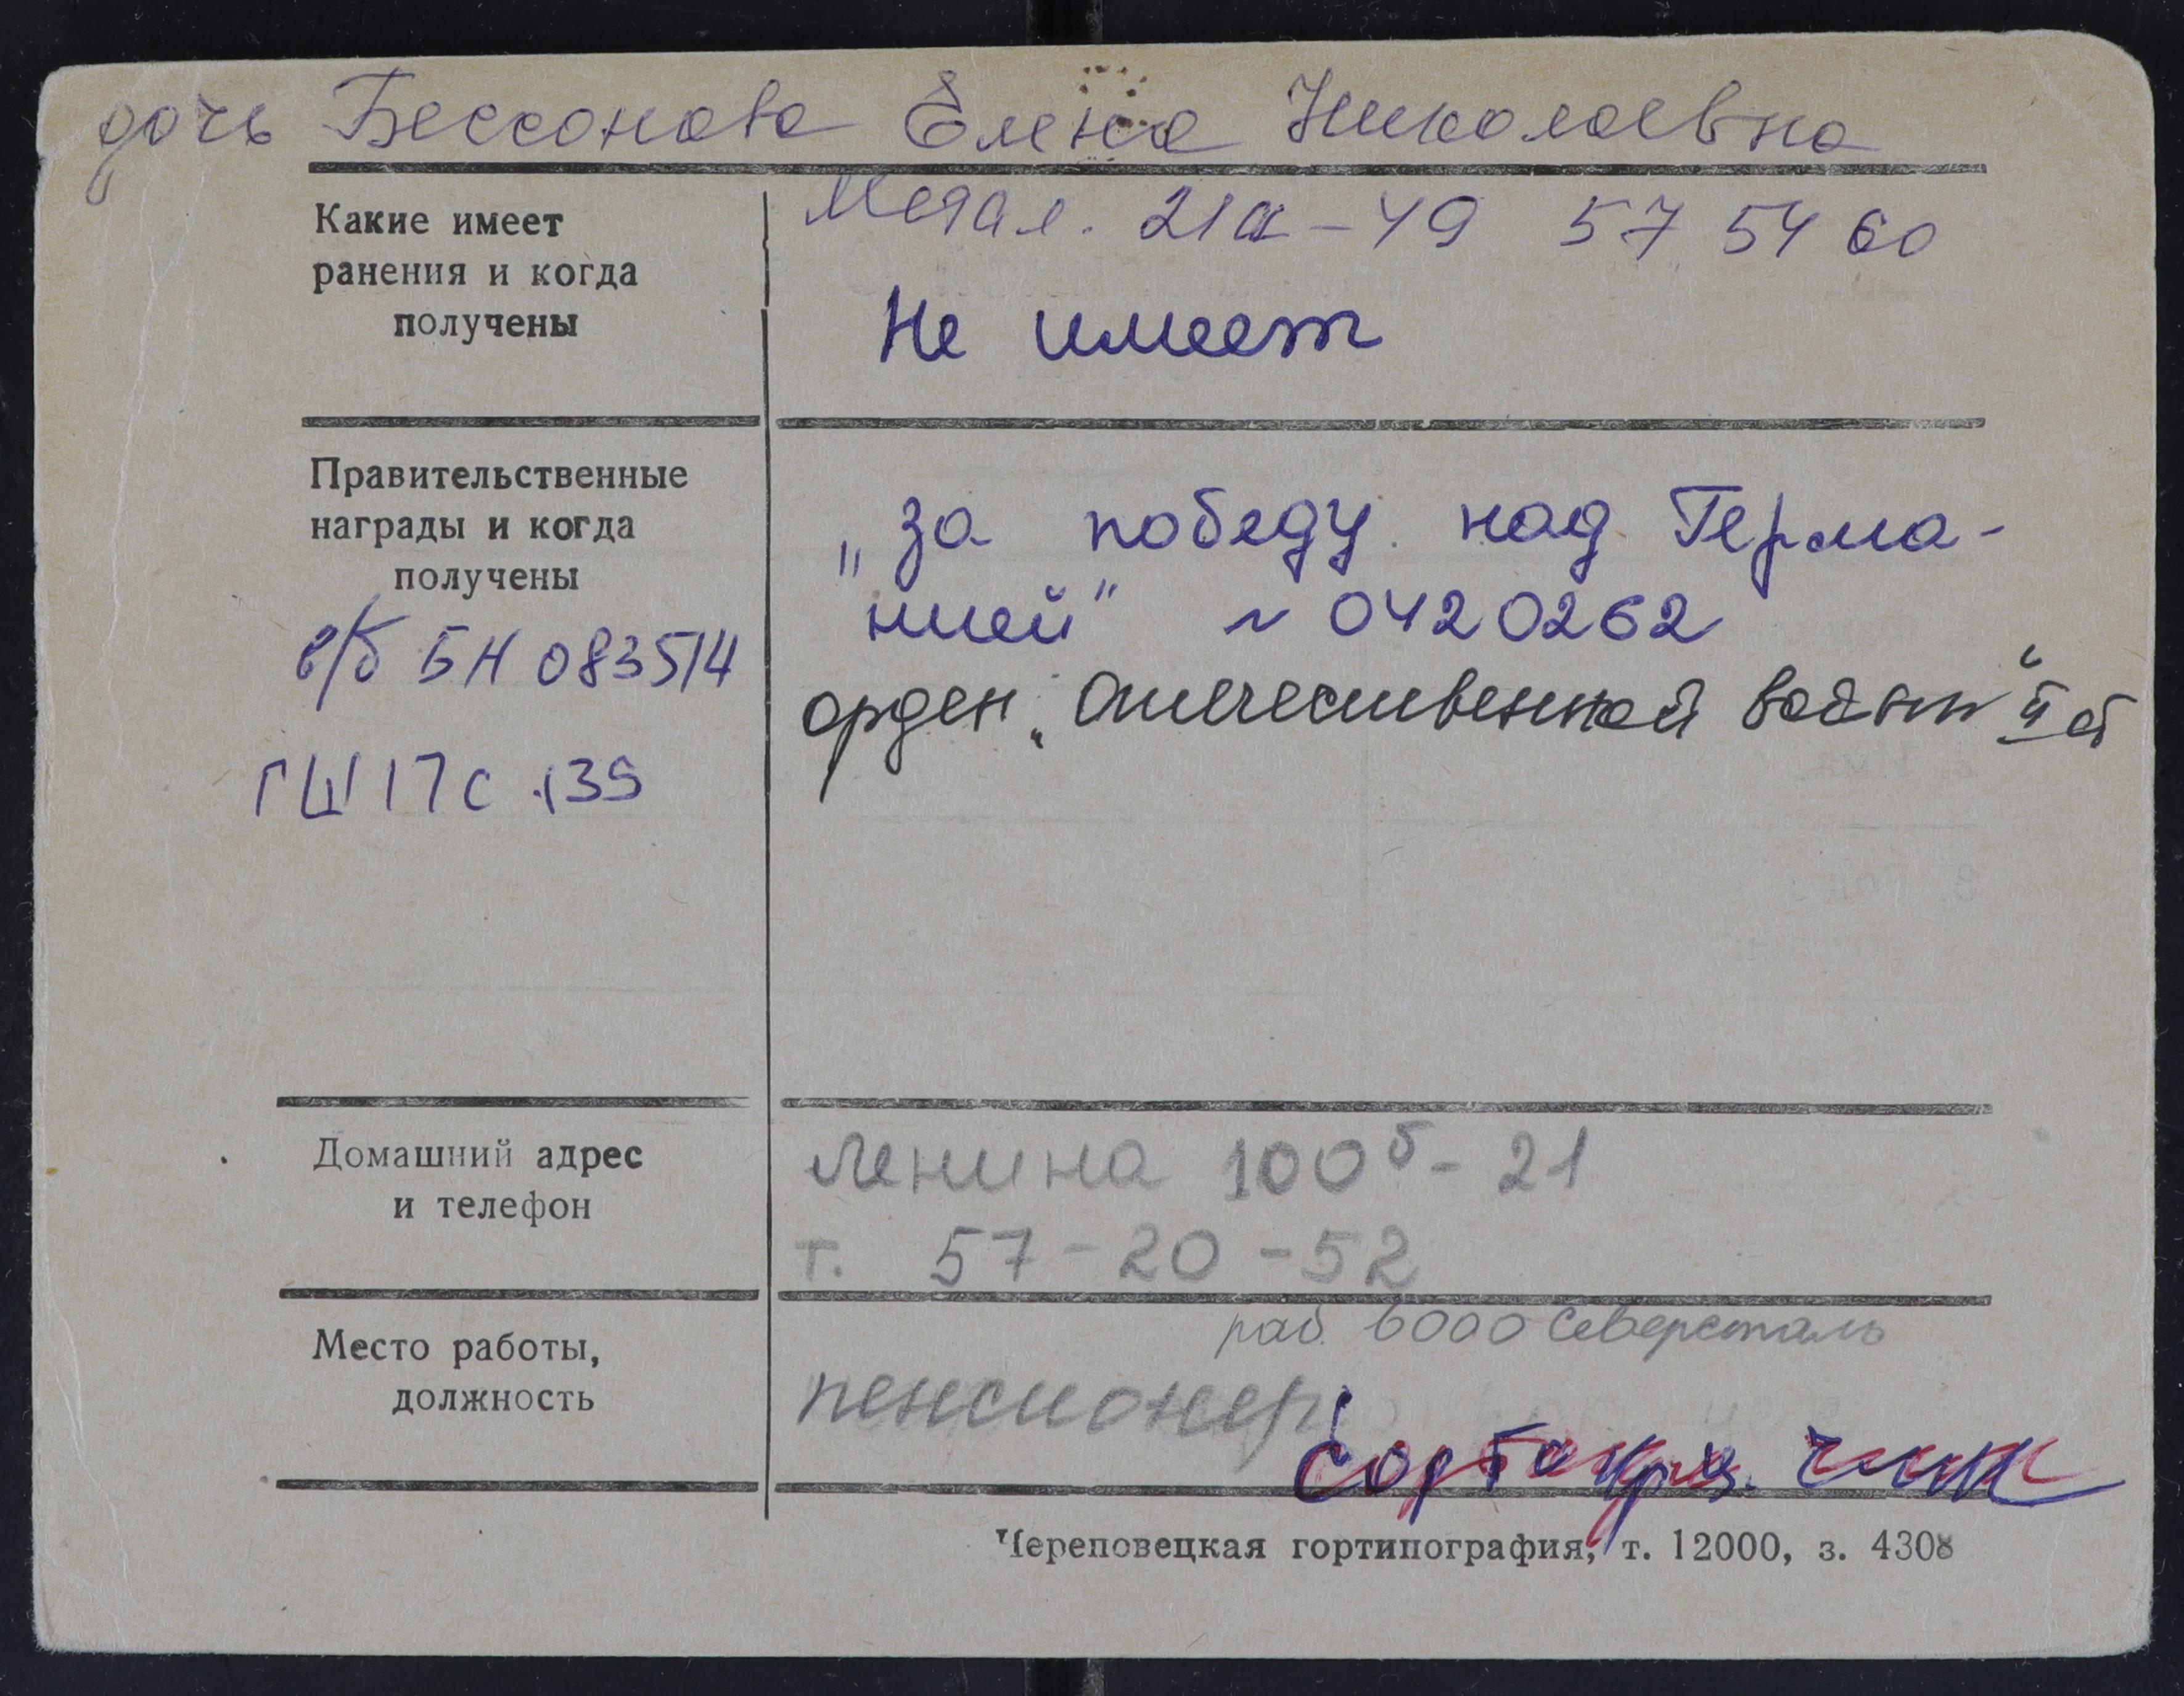 дочь Бессонова Елена Николаевна
Какие имеет
ранения и когда
получены
Метал. 21а-49 57 54 60
Не имеет
Правительственные
награды и когда
получены
в/б БН 083514
ГШ 17с 139
"За победу над Герма-
нией" ~ 0420262
орден "Отечественной войны" II ст
Домашний адрес
и телефон
Ленина 100б - 21
т. 57-20-52
Место работы,
должность
раб. в ООО Северсталь
пенсионер
Череповецкая гортипография, т. 12000, з. 4308